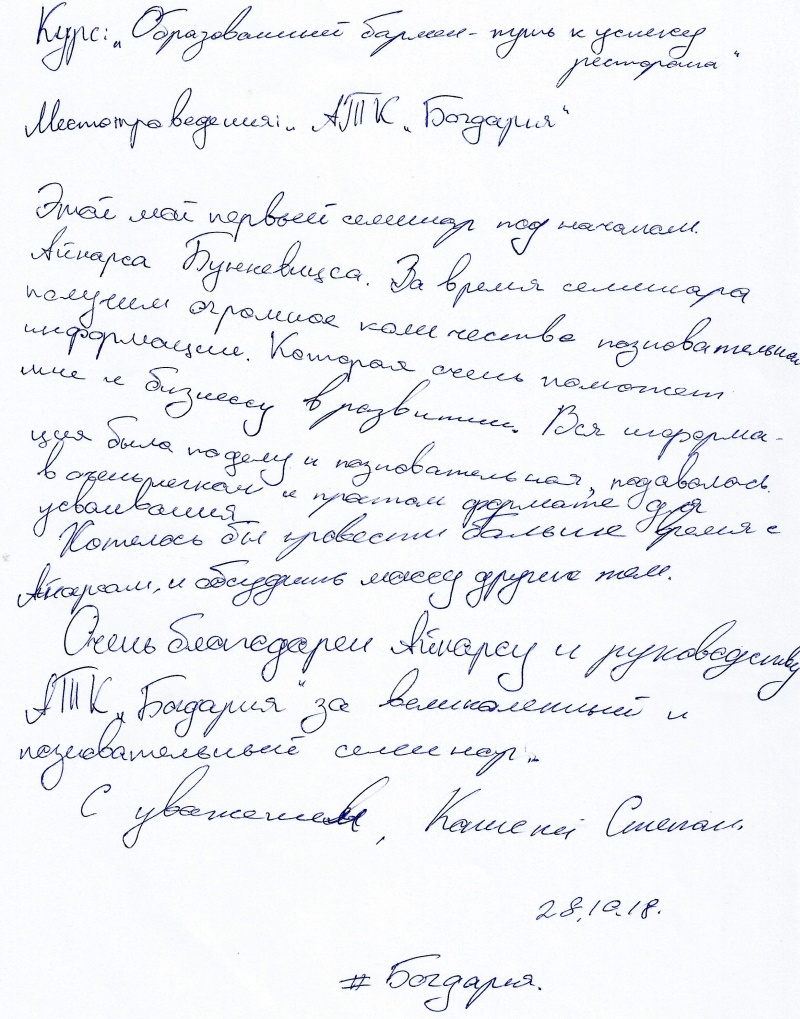 Курс: „Образованный бармен - путь к успеху
ресторана"
Место проведения: „АТК „Богдария"
Этой мой первый семинар под началом
Айнарса Бункевицса. За время семинара
получил огромное количество познавательной
информации. Которая очень поможет
мне и бизнессу в развитии. Вся информа-
ция была по делу и познавательная, подавалась
в очень легком и простом формате для
усваивания
Хотелось бы провести больше время с
Айнарсом, и обсудить массу других тем.
Очень благодарен Айнарсу и руководству
АТК „Богдария" за великолепный и
познавательный семинар.
С уважением, Степан.
28.10.18.
# Богдария.